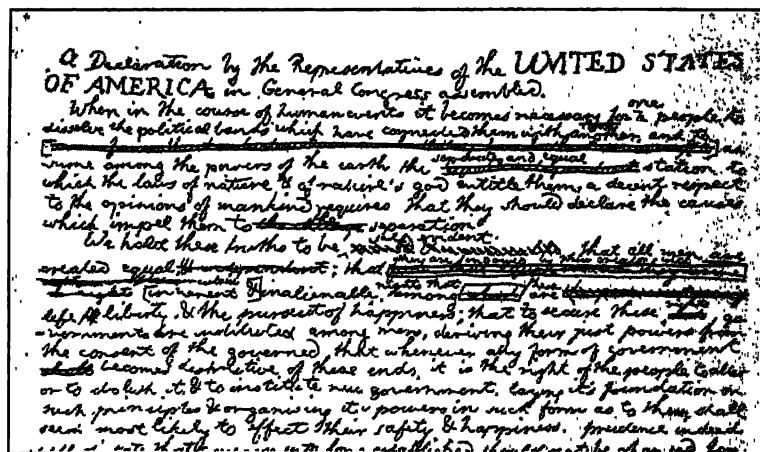 A Declaration by the Representatives of the UNITED STATES
OF AMERICA, in General Congress assembled.
When in the course of human events it becomes necessary for one people to
dissolve the political bands which have connected them with another, and to
as-
sume among the powers of the earth the separate and equal station to
which the laws of nature & of nature's god entitle them, a decent respect
to the opinions of mankind requires that they should declare the causes
which impel them to separation.
We hold these truths to be self-evident. that all men are
created equal; that
rights that
inherent & inalienable among these are
life, liberty, & the pursuit of happiness; that to secure these rights, go
-vernments are instituted among men, deriving their just powers from
the consent of the governed, that whenever any form of government
becomes destructive of these ends, it is the right of the people to alter
or to abolish it, & to institute new government, laying it's foundation on
such principles & organising it's powers in such form, as to them shall
seem most likely to effect their safety & happiness. prudence indeed